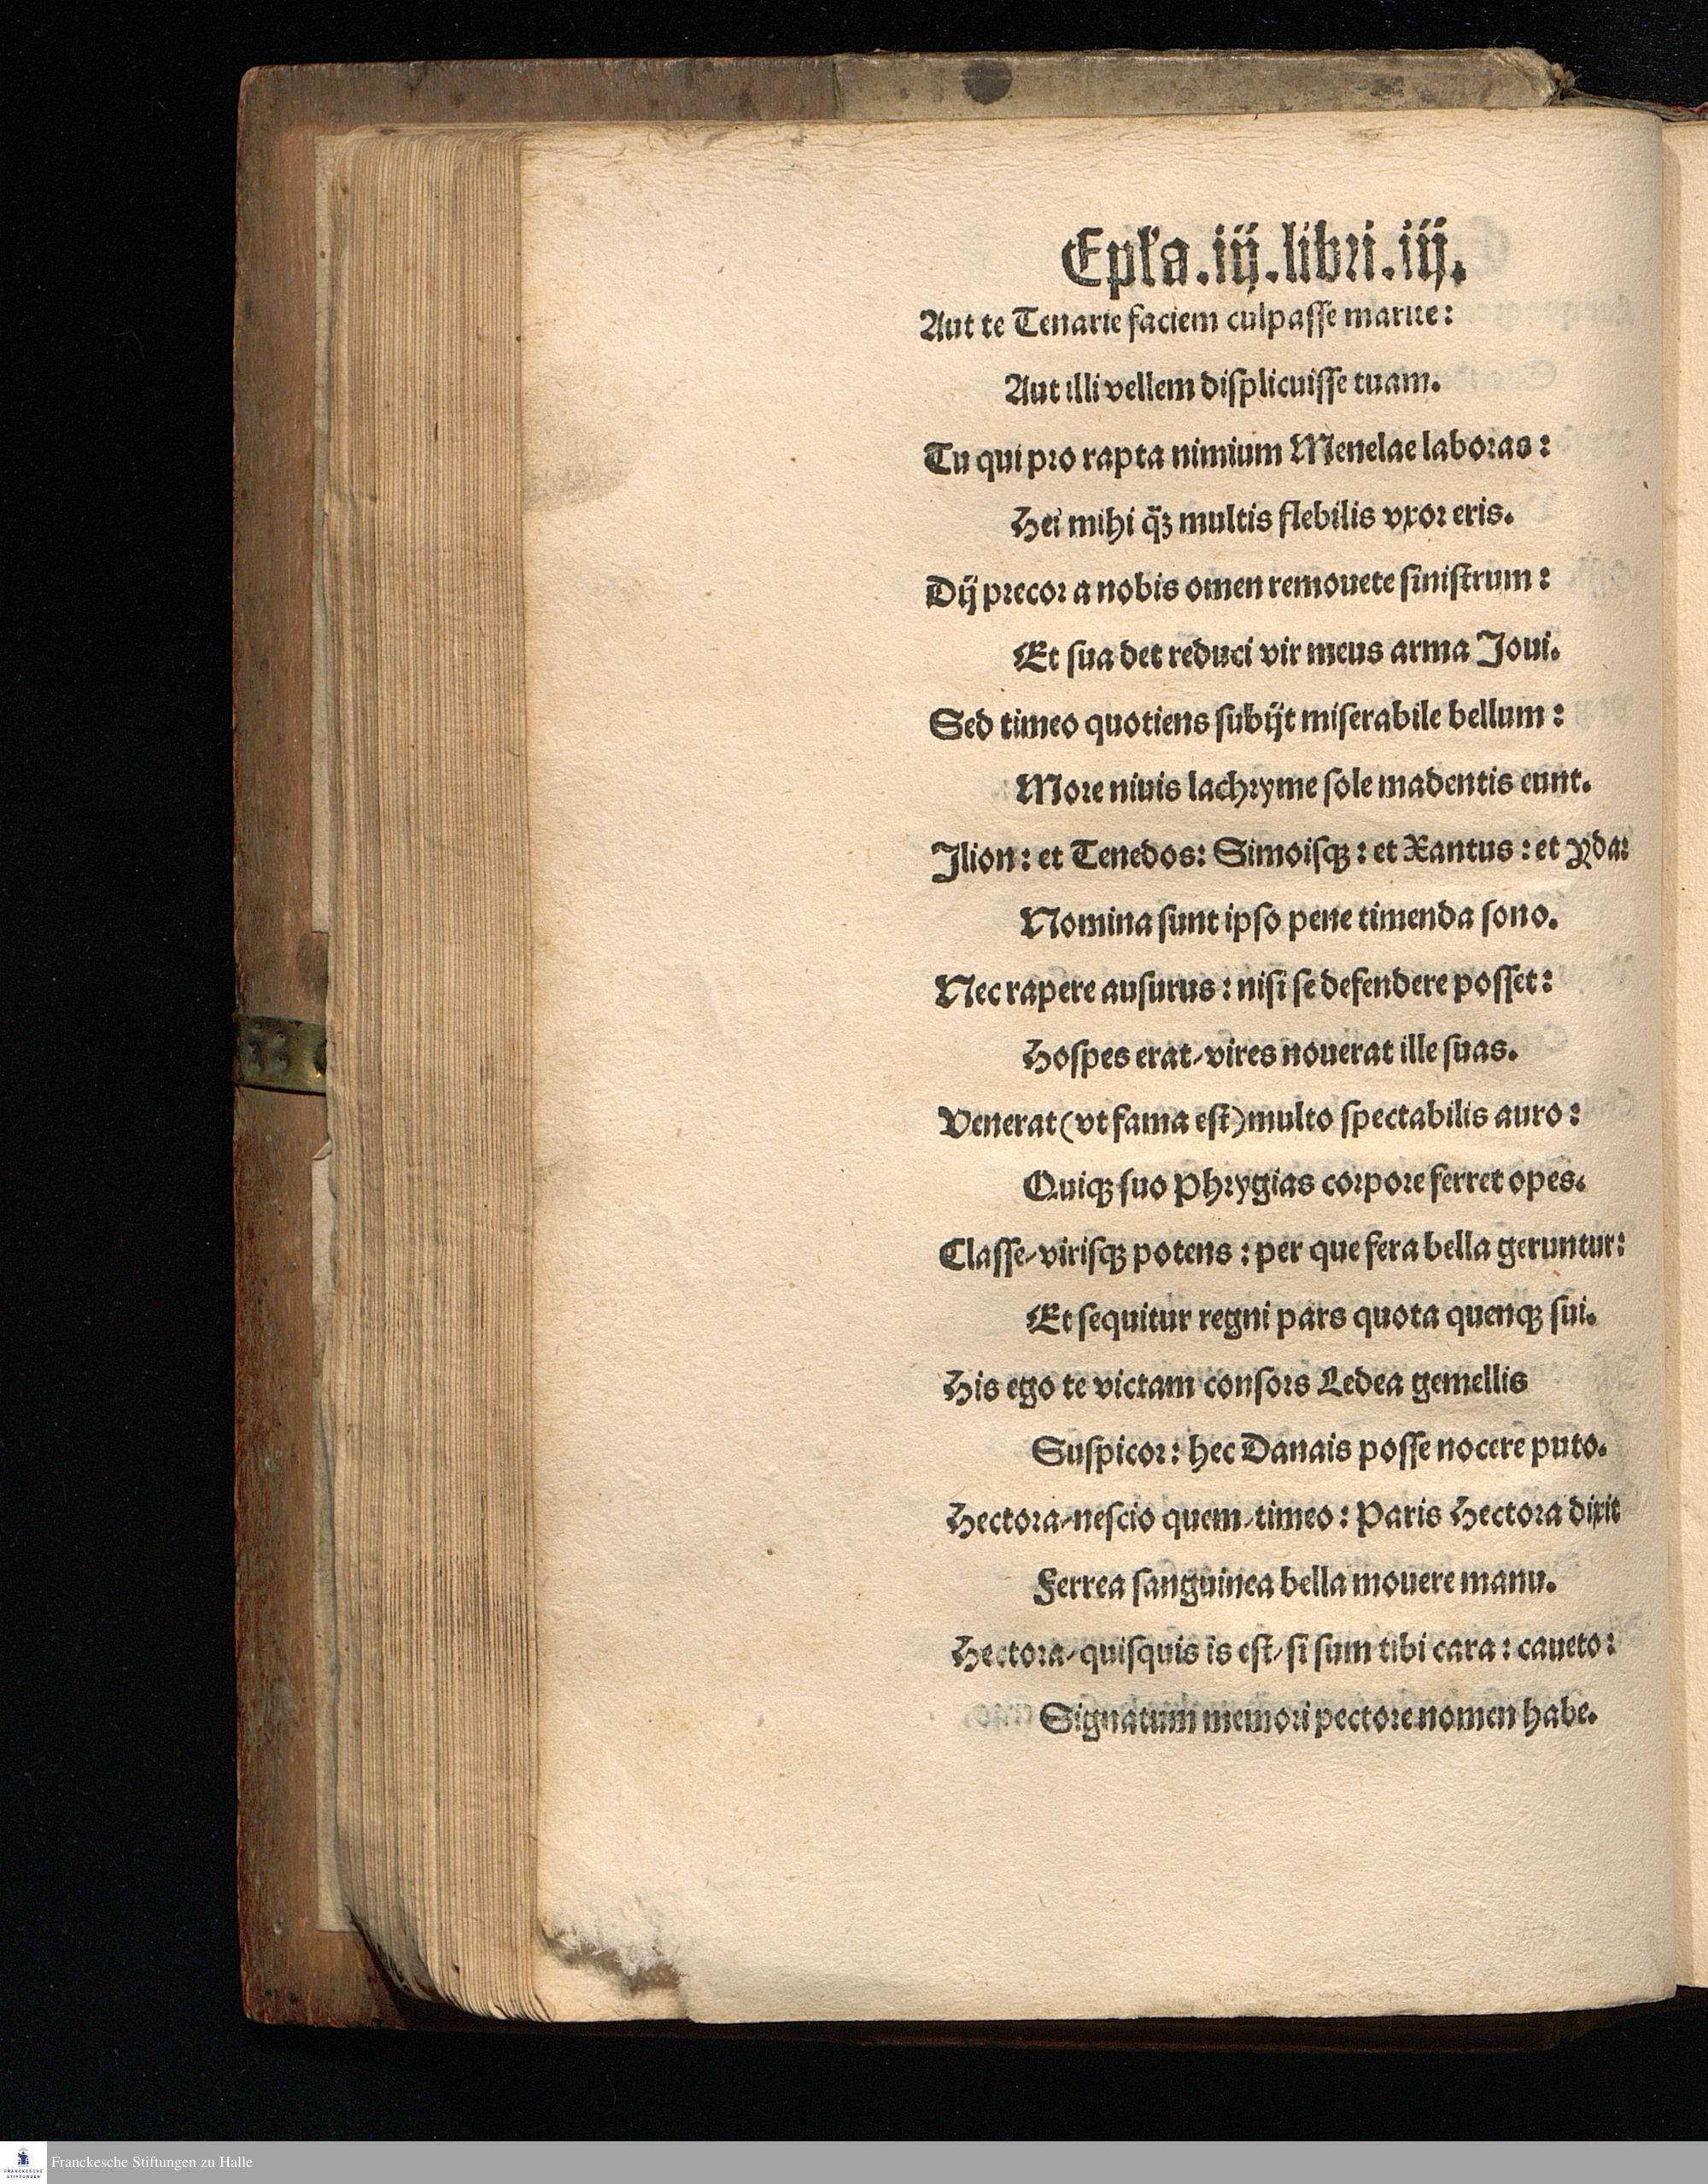 Epl'a.iij.libri.iij.
Aut te Tenarie faciem culpasse marite:
Aut illi vellem displicuisse tuam.
Tu qui pro rapta nimium Menelae laboras:
Hei mihi q̈ꝫ multis flebilis vxor eris.
Dij precor a nobis omen remouete sinistrum:
Et sua det reduci vir meus arma Joui.
Sed timeo quotiens subijt miserabile bellum:
More niuis lachryme sole madentis eunt.
Jlion: et Tenedos: Simoisqꝫ: et Xantus: et Yda:
Nomina sunt ipso pene timenda sono.
Nec rapere ausurus: nisi se defendere posset:
Hospes erat/vires nouerat ille suas.
Venerat (vt fama est) multo spectabilis auro:
Quiqꝫ suo Phrygias corpore ferret opes.
Classe/virisqꝫ potens: per que fera bella geruntur:
Et sequitur regni pars quota quenqꝫ sui.
His ego te victam consors Ledea gemellis
Suspicor: hec Danais posse nocere puto.
Hectora/nescio quem/timeo: Paris Hectora dixit
Ferrea sanguinea bella mouere manu.
Hectora/quisquis is est/si sum tibi cara: caueto:
Signatum memori pectore nomen habe.
Franckesche Stiftungen zu Halle
FRANCKESCHE
STIFTUNGEN